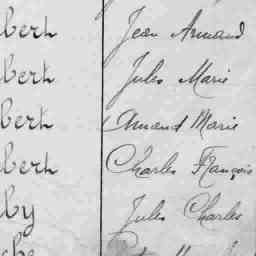 bert Jean Armand
bert Jules Marie
bert Amand Marie
bert Charles François
by Jules Charles